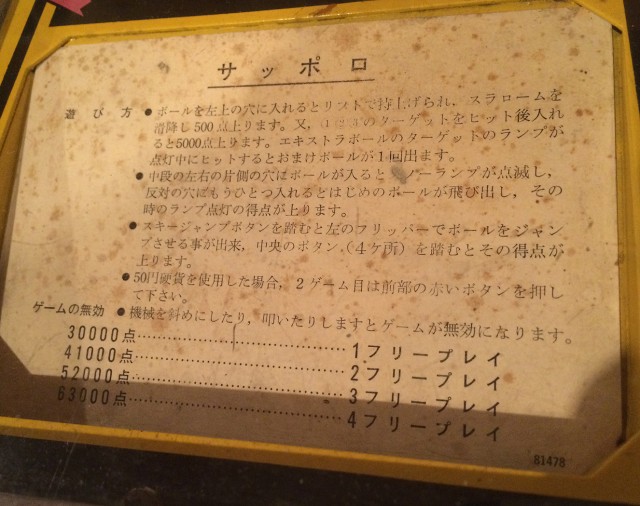 サッポロ
遊び方 ●ボールを左上の穴に入れるとリフトで持上げられ、スラロームを
滑降し500点上ります。又、のターゲットをヒット後入れ
ると5000点上ります。エキストラボールのターゲットのランプが
点灯中にヒットするとおまけボールが1回出ます。
●中段の左右の片側の穴にボールが入るとランプが点滅し、
反対の穴にもうひとつ入れるとはじめのボールが飛び出し、その
時のランプ点灯の得点が上ります。
●スキージャンプボタンを踏むと左のフリッパーでボールをジャン
プさせる事が出来、中央のボタン、(4ケ所)を踏むとその得点が
上ります。
●50円硬貨を使用した場合、2ゲーム目は前部の赤いボタンを押し
て下さい。
ゲームの無効 ●機械を斜めにしたり、叩いたりしますとゲームが無効になります。
30000点…………………………1フリープレイ
41000点…………………………2フリープレイ
52000点…………………………3フリープレイ
63000点…………………………4フリープレイ
81478